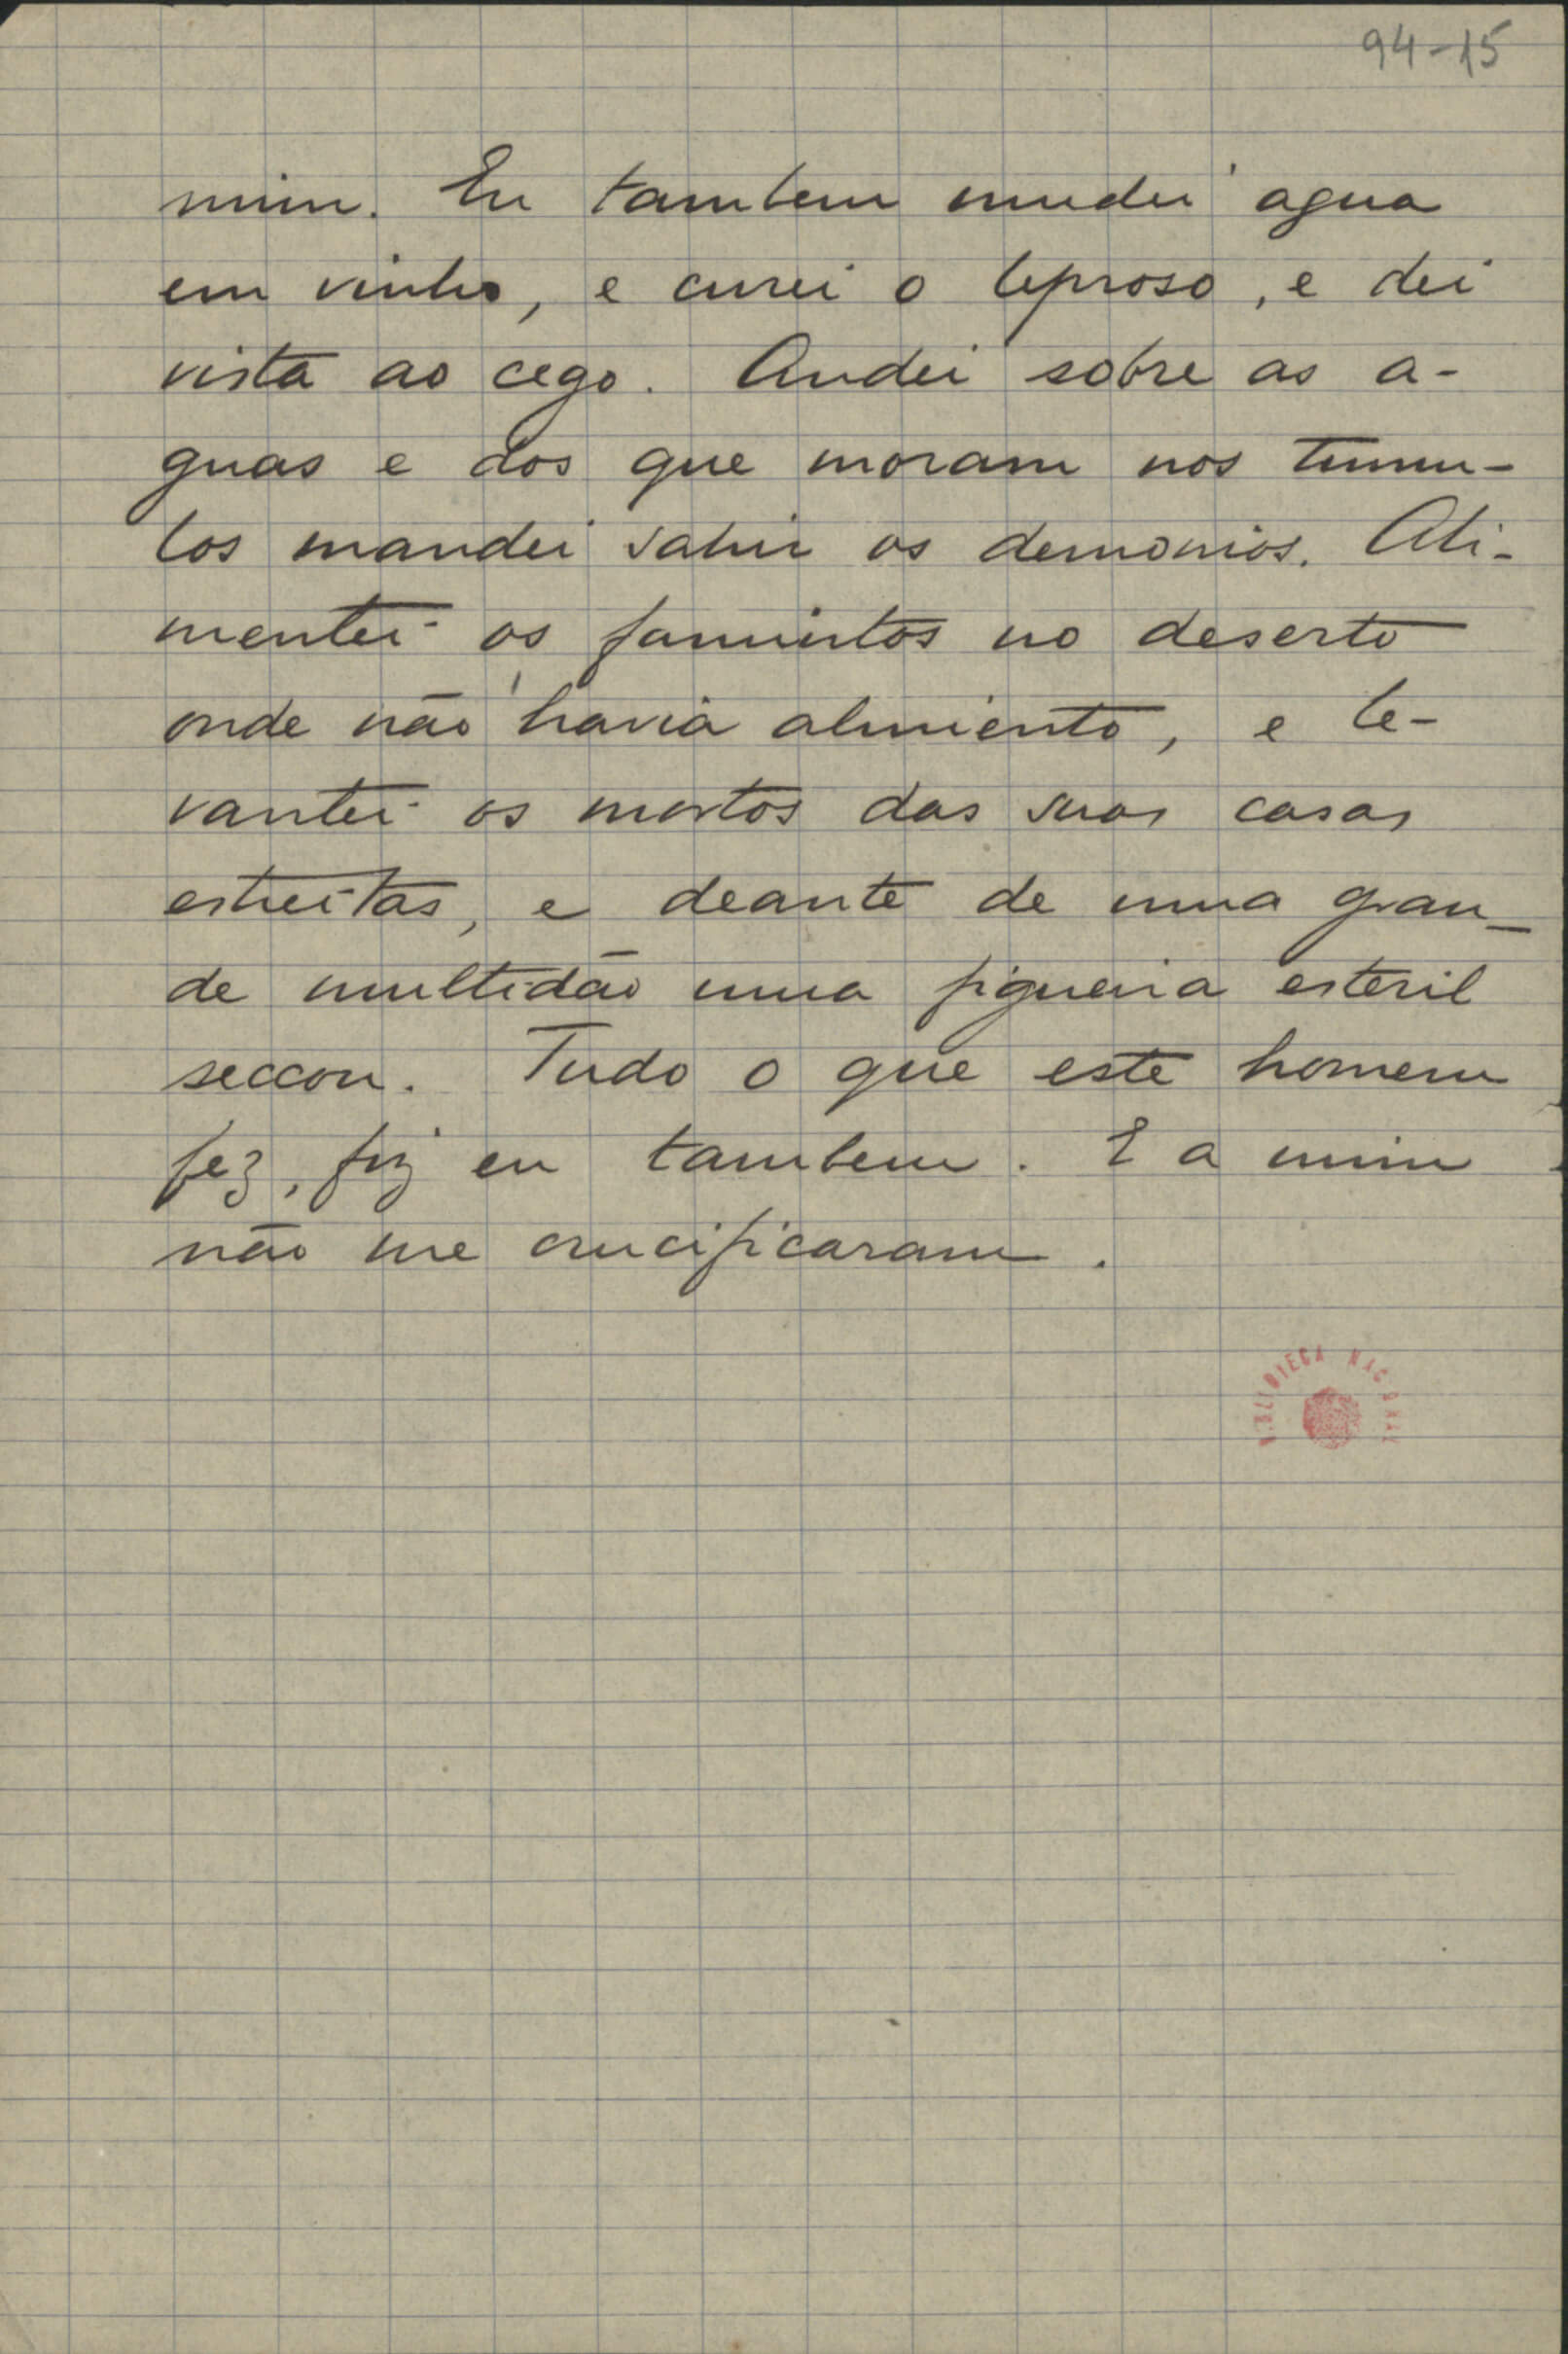 94-15
mim. Eu tambem mudei agua
em vinho, e curei o leproso, e dei
vista ao cego. Andei sobre as a-
guas e dos que moram nos tumu-
los mandei sahir os demonios. Ali-
mentei os famintos no deserto
onde não havia alimento, e le-
vantei os mortos das suas casas
estreitas, e deante de uma gran-
de multidão uma figueira esteril
seccou. Tudo o que este homem
fez, fiz eu tambem. E a mim
não me crucificaram.
BIBLIOTECA NACIONAL